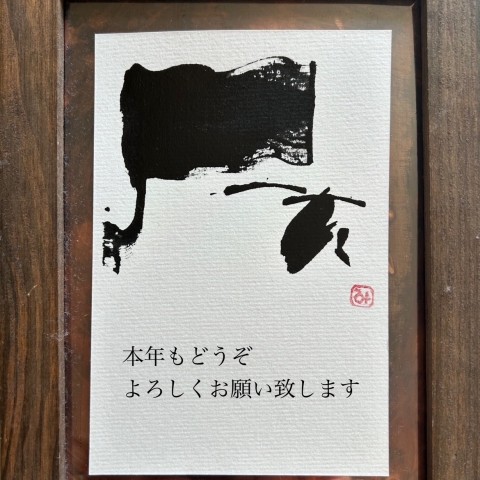 亥
本年もどうぞ
よろしくお願い致します